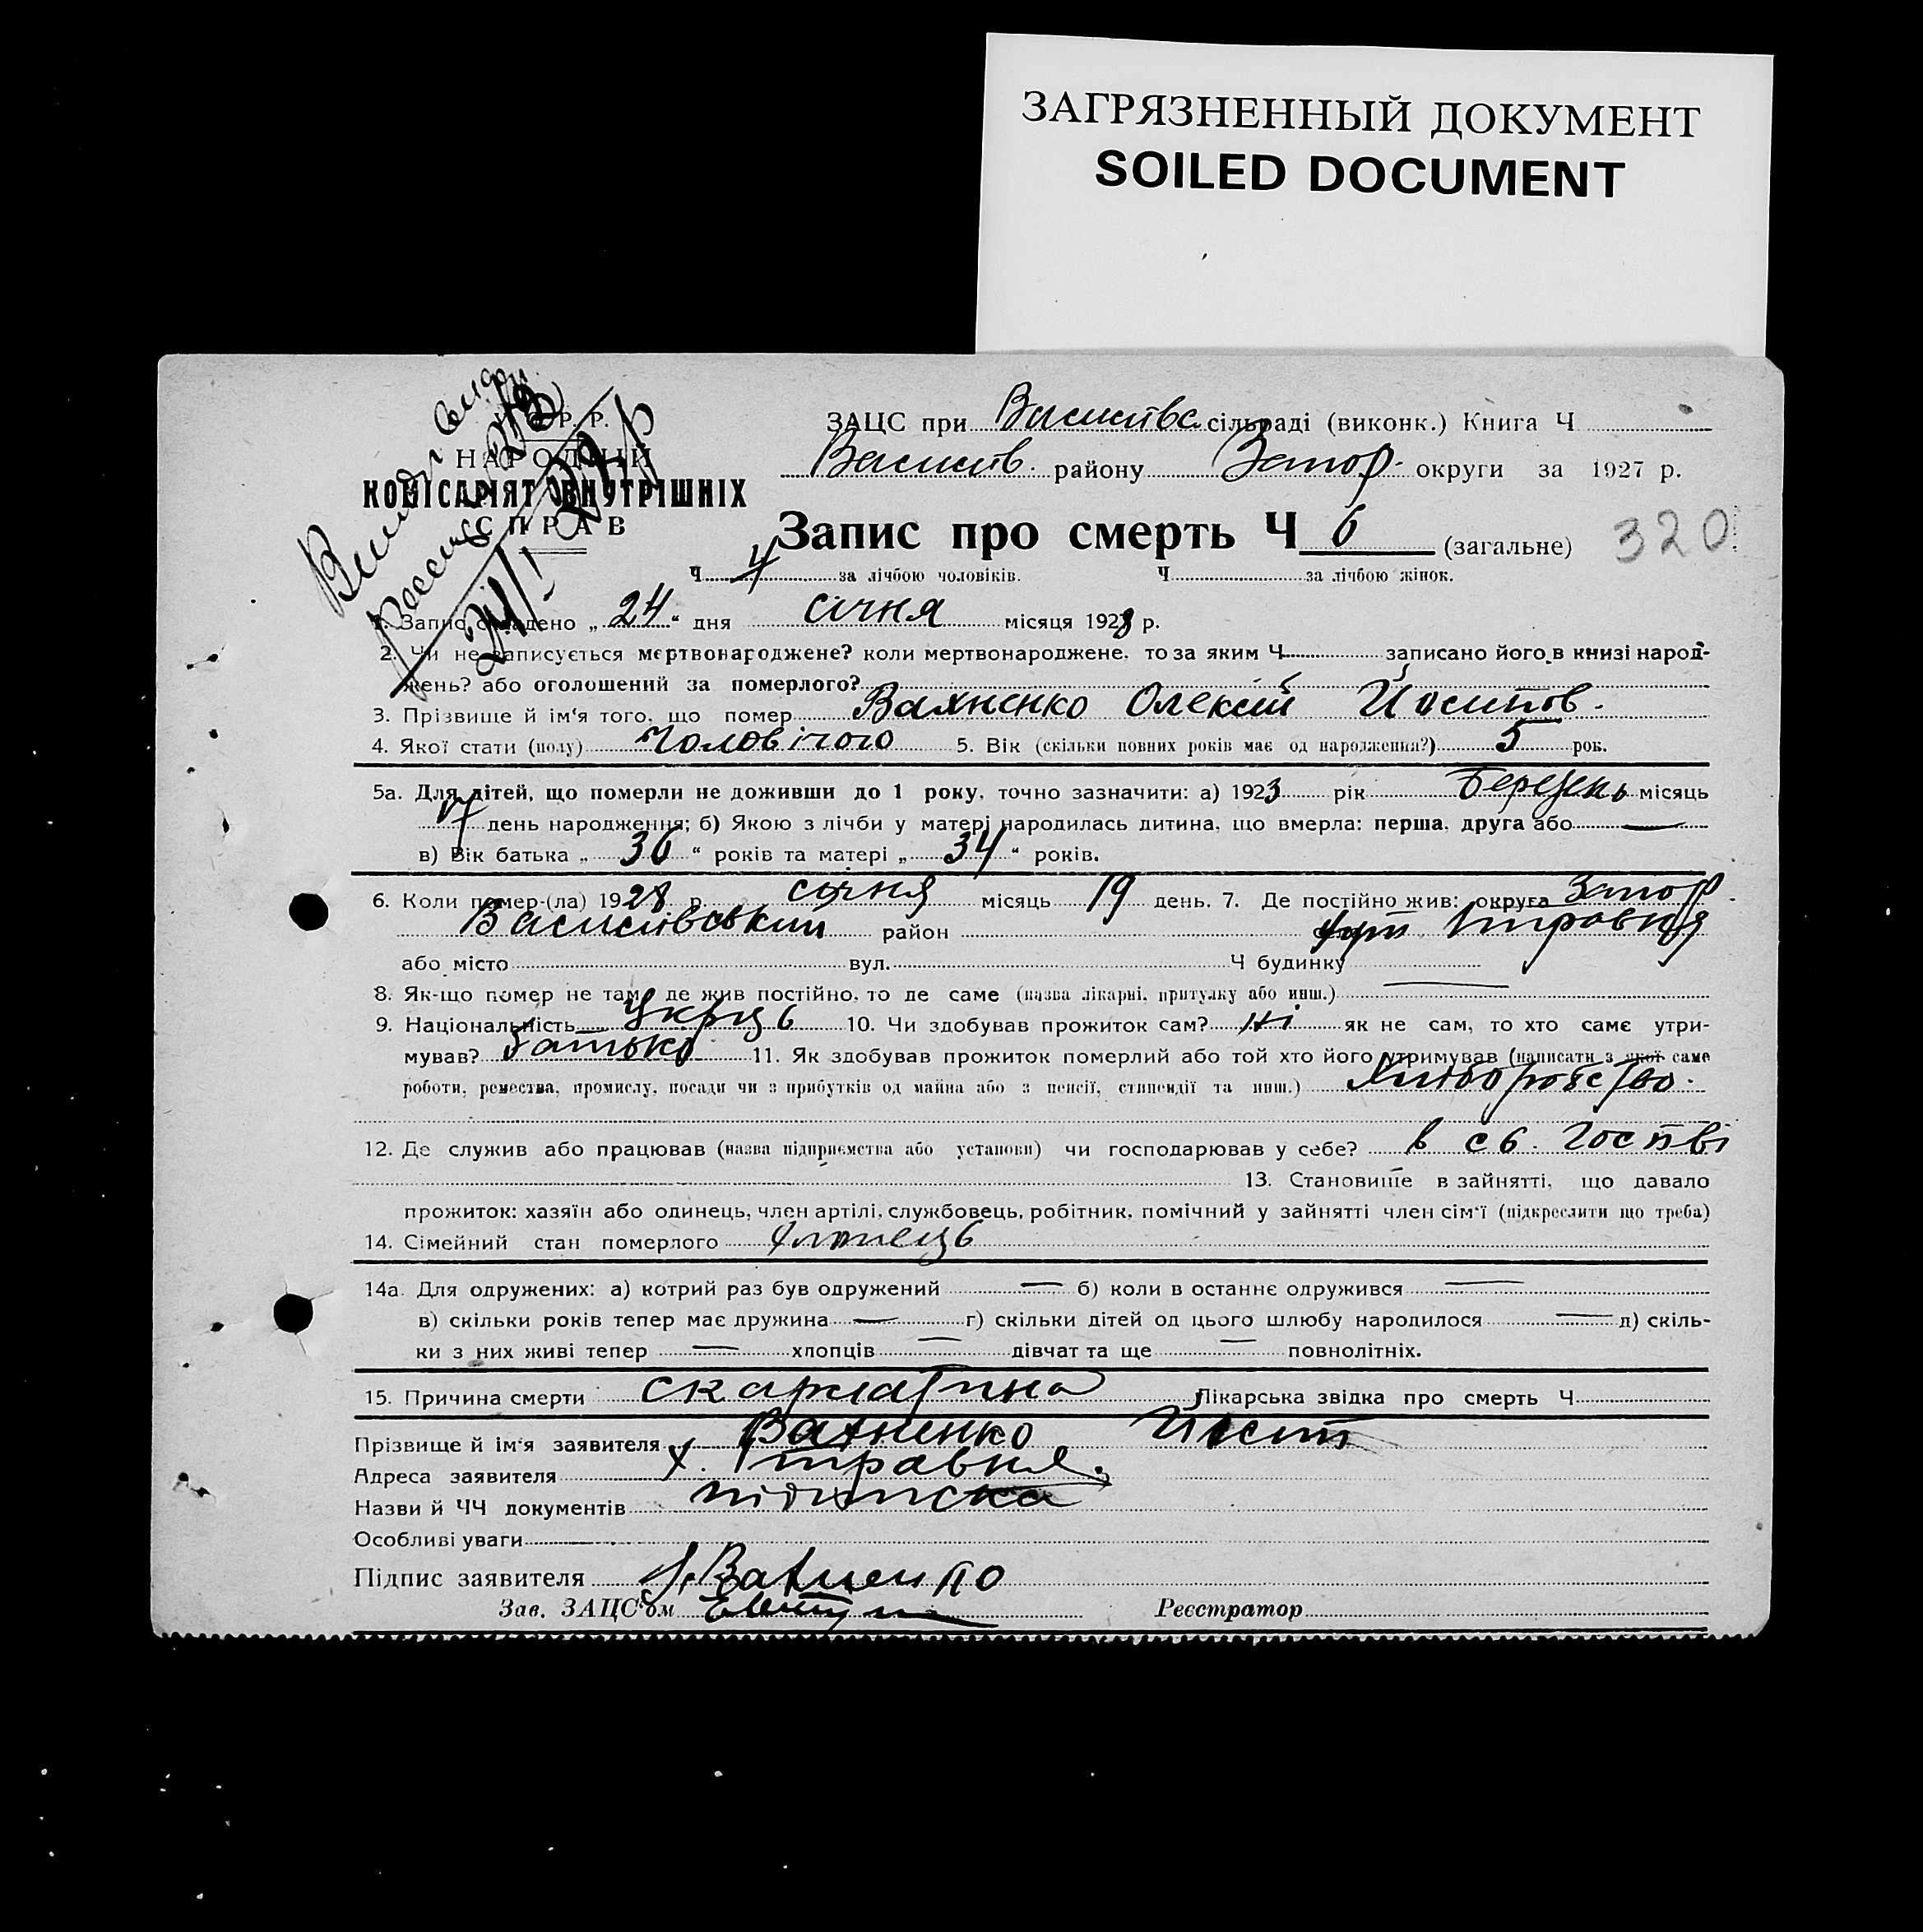 ЗАГРЯЗНЕННЫЙ ДОКУМЕНТ
SOILED DOCUMENT
У. С. Р. Р.
НАРОДНІЙ
КОМІСАРІЯТ ВНУТРІШНІХ
СПРАВ
ЗАЦС при Василівс. сільраді (виконк.) Книга Ч
Василів. району Запор. округи за 1927 р.
Запис про смерть Ч 6 (загальне) 320
Ч 4 за лічбою чоловіків. Ч за лічбою жінок.
1. Запис складено „24“ дня січня місяця 1928 р.
2. Чи не записується мертвонароджене? коли мертвонароджене, то за яким Ч записано його в книзі народ-
жень? або оголошений за померлого?
3. Прізвище й ім‘я того, що помер Вахненко Олексій Йосипов.
4. Якої стати (полу) Чоловічого 5. Вік (скільки повних років має од народження?) 5 рок.
5а. Для дітей, що померли не доживши до 1 року, точно зазначити: а) 1923 рік березень місяць
17 день народження; б) Якою з лічби у матері народилась дитина, що вмерла: перша, друга або —
в) Вік батька „36“ років та матері „34“ років.
6. Коли помер-(ла) 1928 р. січня місяць 19 день. 7. Де постійно жив: округа Запор
Василівський район хут
або місто вул. Ч будинку
8. Як-що помер не там, де жив постійно, то де саме (назва лікарні, притулку або инш.) —
9. Національність Укрць 10. Чи здобував прожиток сам? ні як не сам, то хто саме утри-
мував? батько 11. Як здобував прожиток померлий або той хто його утримував (написати з якої саме
роботи, ремества, промислу, посади чи з прибутків од майна або з пенсії, стипендії та инш.) Хліборобство.
12. Де служив або працював (назва підприємства або установи) чи господарював у себе? в св. госп-ві
13. Становище в зайнятті, що давало
прожиток: хазяїн або одинець, член артілі, службовець, робітник, помічний у зайнятті член сім‘ї (підкреслити що треба)
14. Сімейний стан померлого хлопець
14а. Для одружених: а) котрий раз був одружений — б) коли в останнє одружився —
в) скільки років тепер має дружина — г) скільки дітей од цього шлюбу народилося — д) скіль-
ки з них живі тепер — хлопців — дівчат та ще — повнолітніх.
15. Причина смерти скарлатина Лікарська звідка про смерть Ч
Прізвище й ім‘я заявителя Вахненко Йосип
Адреса заявителя х.
Назви й ЧЧ документів підписка
Особливі уваги
Підпис заявителя Й. Вахненко
Зав. ЗАЦС‘ом Реєстратор